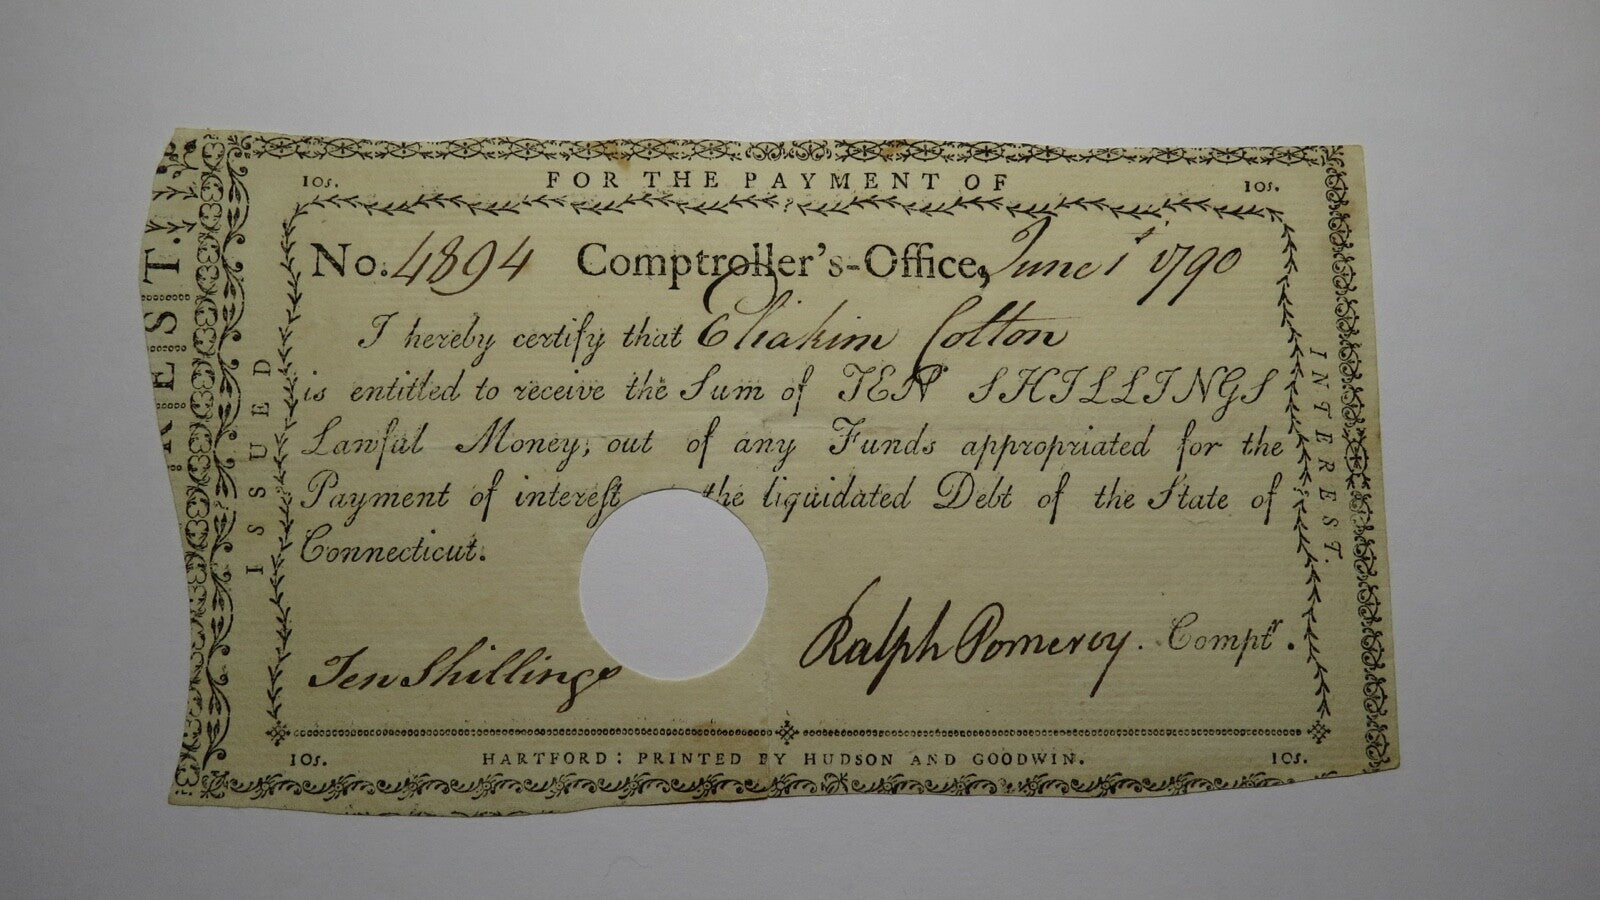 10s. FOR THE PAYMENT OF 10s.
No. 4894 Comptroller's-Office, June 1st 1790
I hereby certify that Eliakim Colton
is entitled to receive the Sum of TEN SHILLINGS
Lawful Money, out of any Funds appropriated for the
Payment of interest the liquidated Debt of the State of
Connecticut.
Ten Shillings
Ralph Pomeroy. Comptr.
10s. HARTFORD: PRINTED BY HUDSON AND GOODWIN. 10s.
ISSUED
INTEREST.
REST.